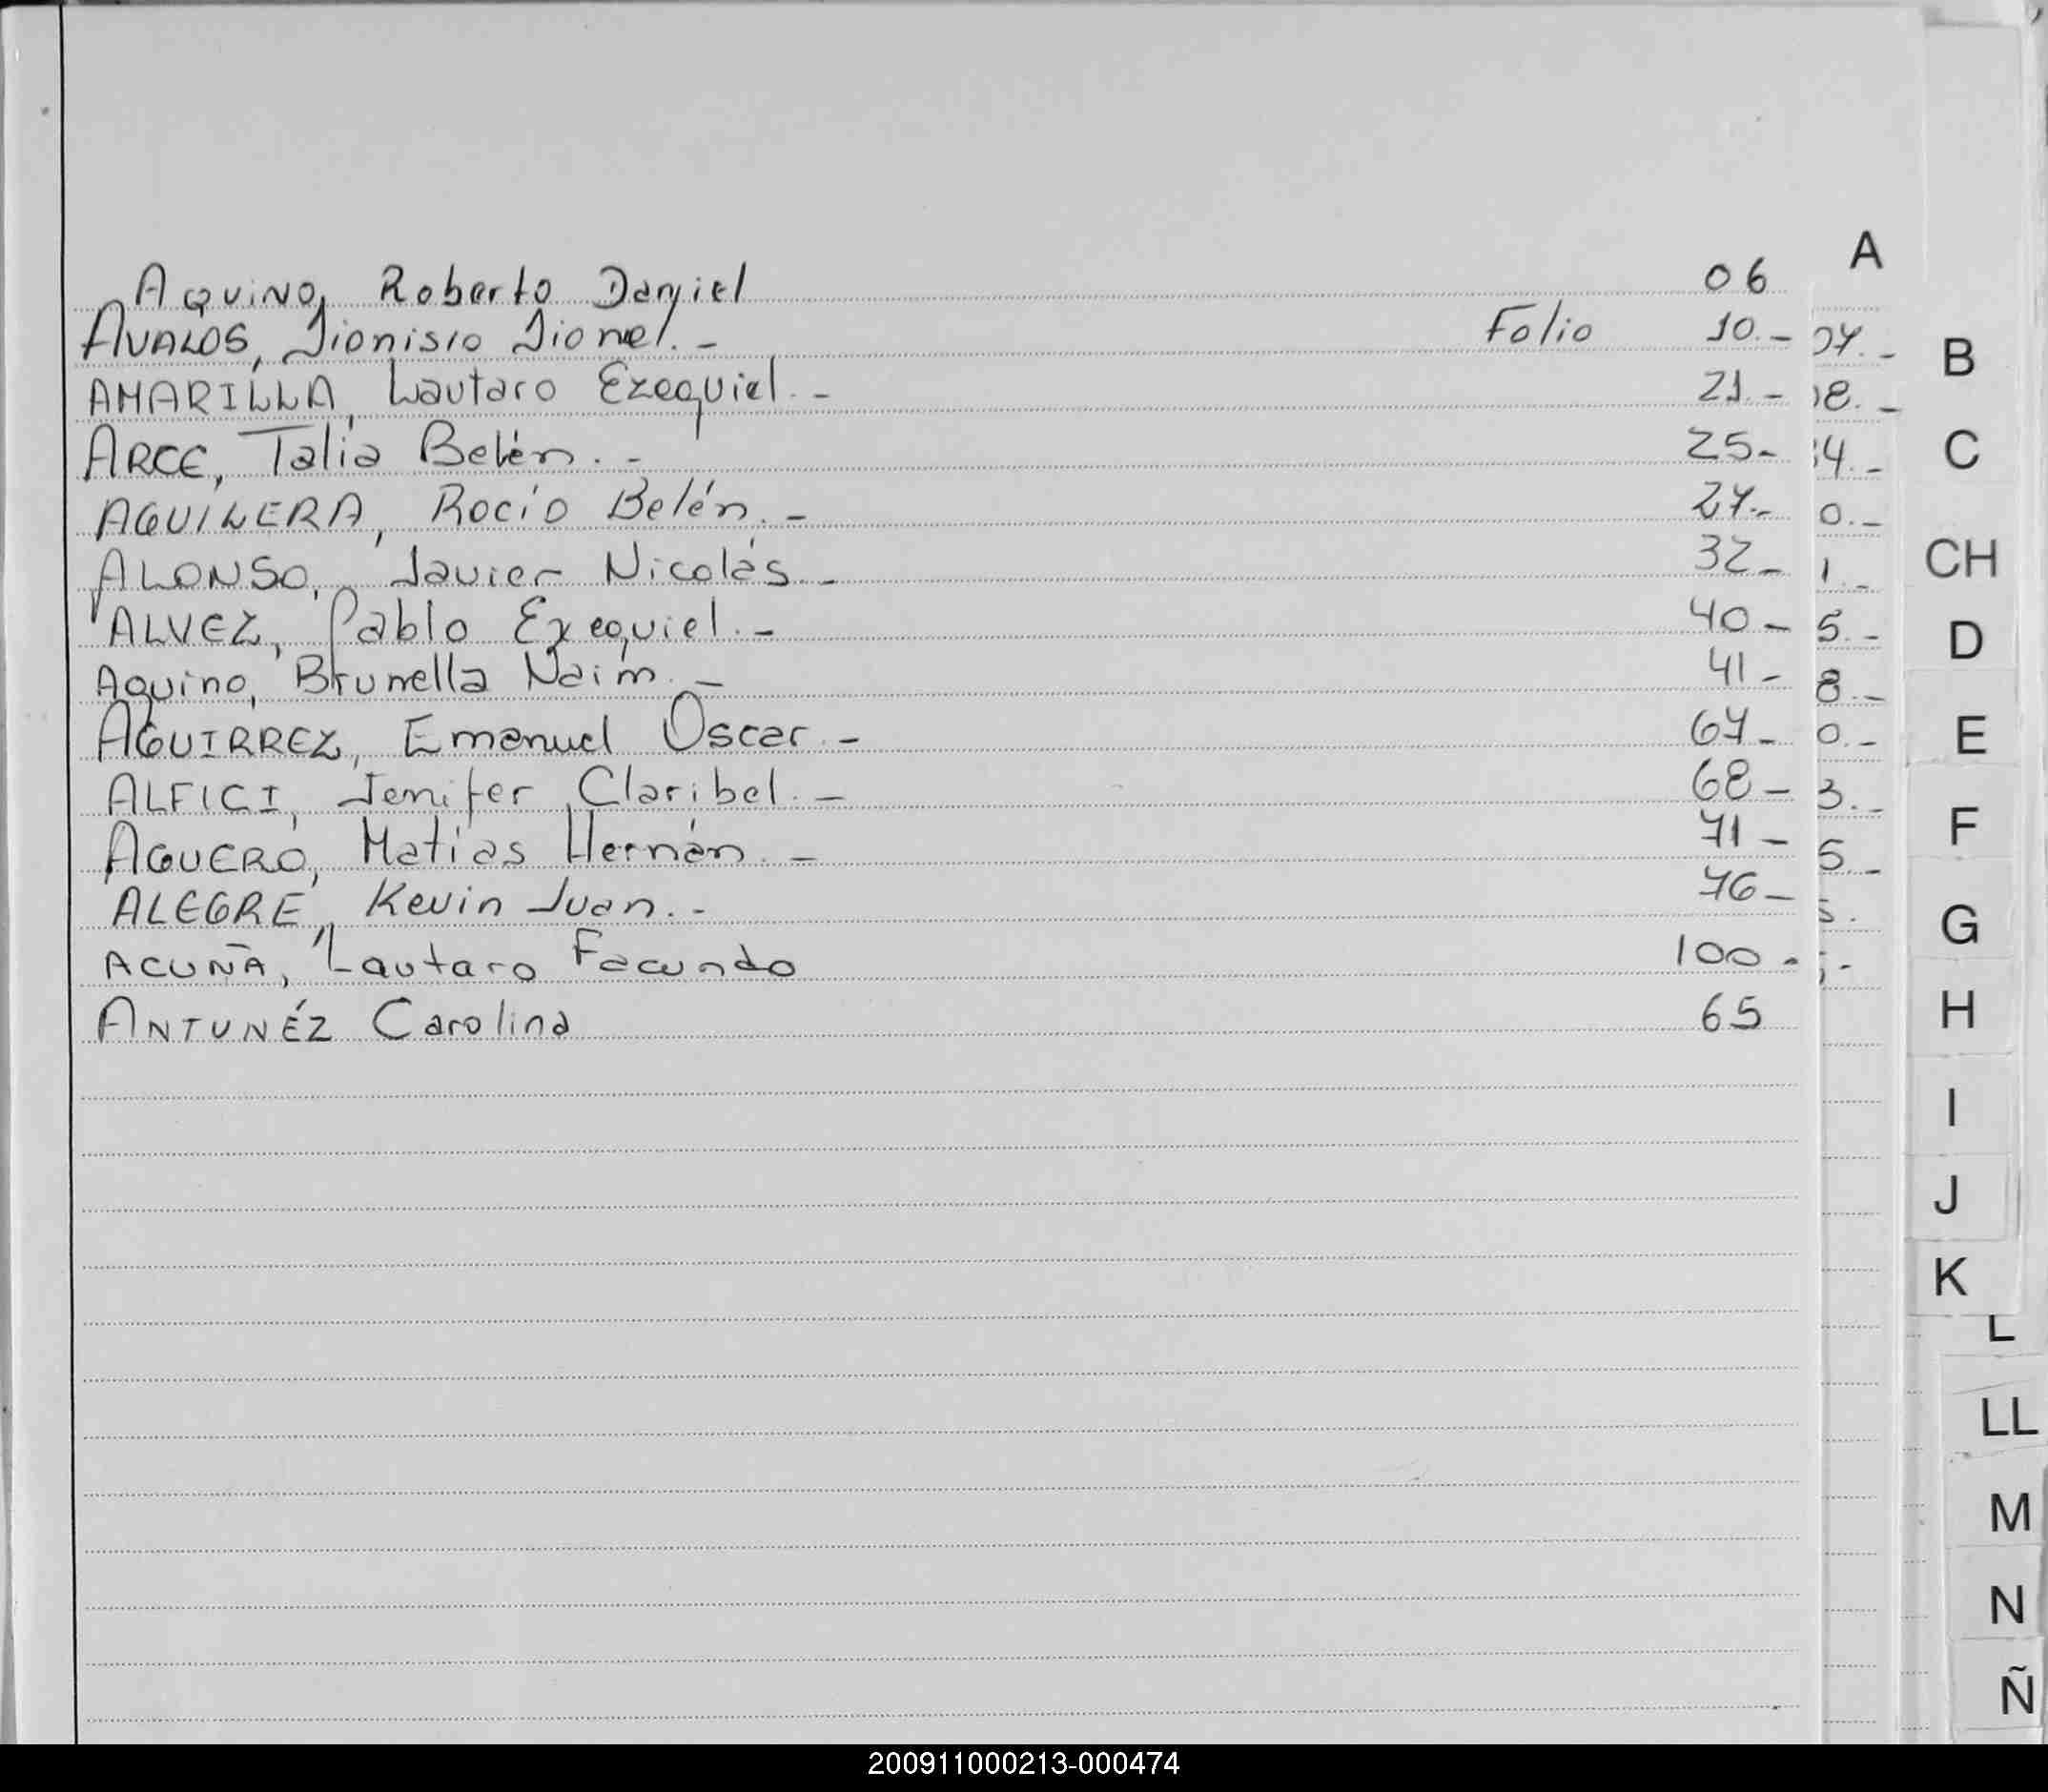 A
AQUINO, Roberto Daniel 06
AVALOS, Dionisio Dionel.- Folio 10.-
AMARILLA, Lautaro Ezequiel.- 21.-
ARCE, Talia Belén.- 25-
AGUILERA, Rocío Belén.- 27.-
ALONSO, Javier Nicolás.- 32-
ALVEZ, Pablo Ezequiel.- 40-
Aquino, Brunella Naim.- 41-
AGUIRREZ, Emanuel Oscar.- 67-
ALFICI, Jenifer Claribel.- 68-
AGUERO, Matías Hernán.- 71-
ALEGRE, Kevin Juan.- 76-
ACUÑA, Lautaro Facundo 100-
ANTUNÉZ Carolina 65
B
C
CH
D
E
F
G
H
I
J
K
L
LL
M
N
Ñ
200911000213-000474